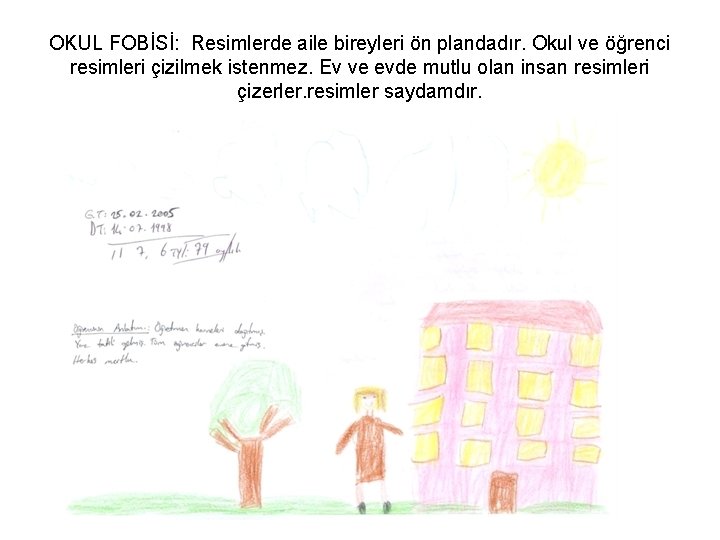 OKUL FOBİSİ:  Resimlerde aile bireyleri ön plandadır. Okul ve öğrenci
resimleri çizilmek istenmez. Ev ve evde mutlu olan insan resimleri
çizerler.resimler saydamdır.
G.T: 25.02.2005
DT: 14.07.1998
11 7. 6 Tyl: 79 aylık
Öğrencinin Anlatımı: Öğretmen karneleri dağıtmış.
Yine tatil gelmiş. Tüm öğrenciler evine gitmiş.
Herkes mutlu.